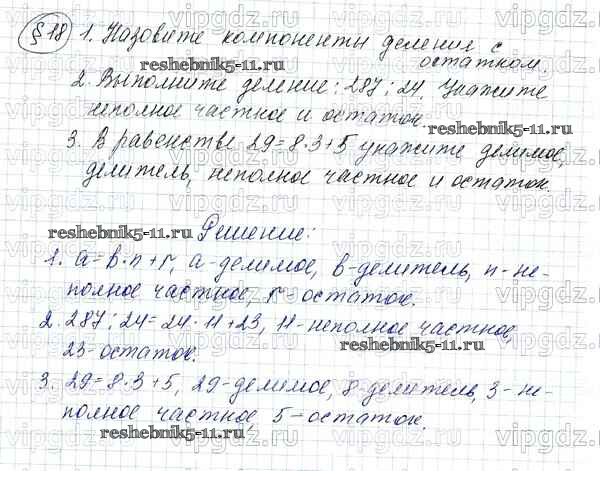 §18 1. Назовите компоненты деления с
остатком.
reshebnik5-11.ru
2. Выполните деление: 287:24. Укажите
неполное частное и остаток.
reshebnik5-11.ru
3. В равенстве 29=8·3+5 укажите делимое,
делитель, неполное частное и остаток.
reshebnik5-11.ru
Решение:
1. a=b·n+r, a-делимое, b-делитель, n-не-
полное частное, r- остаток.
2. 287:24=24·11+23, 11-неполное частное,
reshebnik5-11.ru
23-остаток.
3. 29=8·3+5, 29-делимое, 8-делитель, 3-не-
полное частное, 5-остаток.
reshebnik5-11.ru
vipgdz.ru